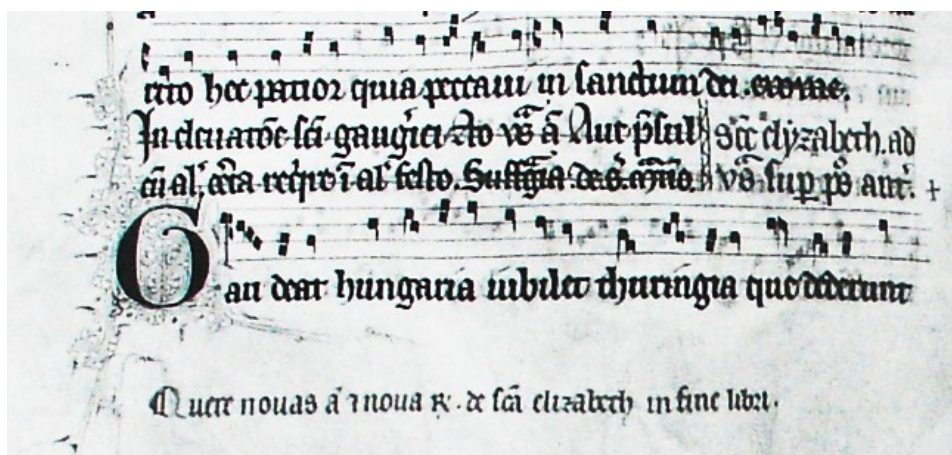 rito hec patior quia peccaui in sanctum dei. euouae.
In eleuatōe scī gaugīci Ao vs̄ ā Aue p̄sul scē elyzabeth. ad
cū al', cēta reqīr ī al' festo. Suffgīa de s. vs̄ sup ps̄ ant'. +
Gau deat hungaria iubilet thuringia que dederunt
Quere nouas ā ⁊ noua ꝶ. de scā elizabeth in fine libri.